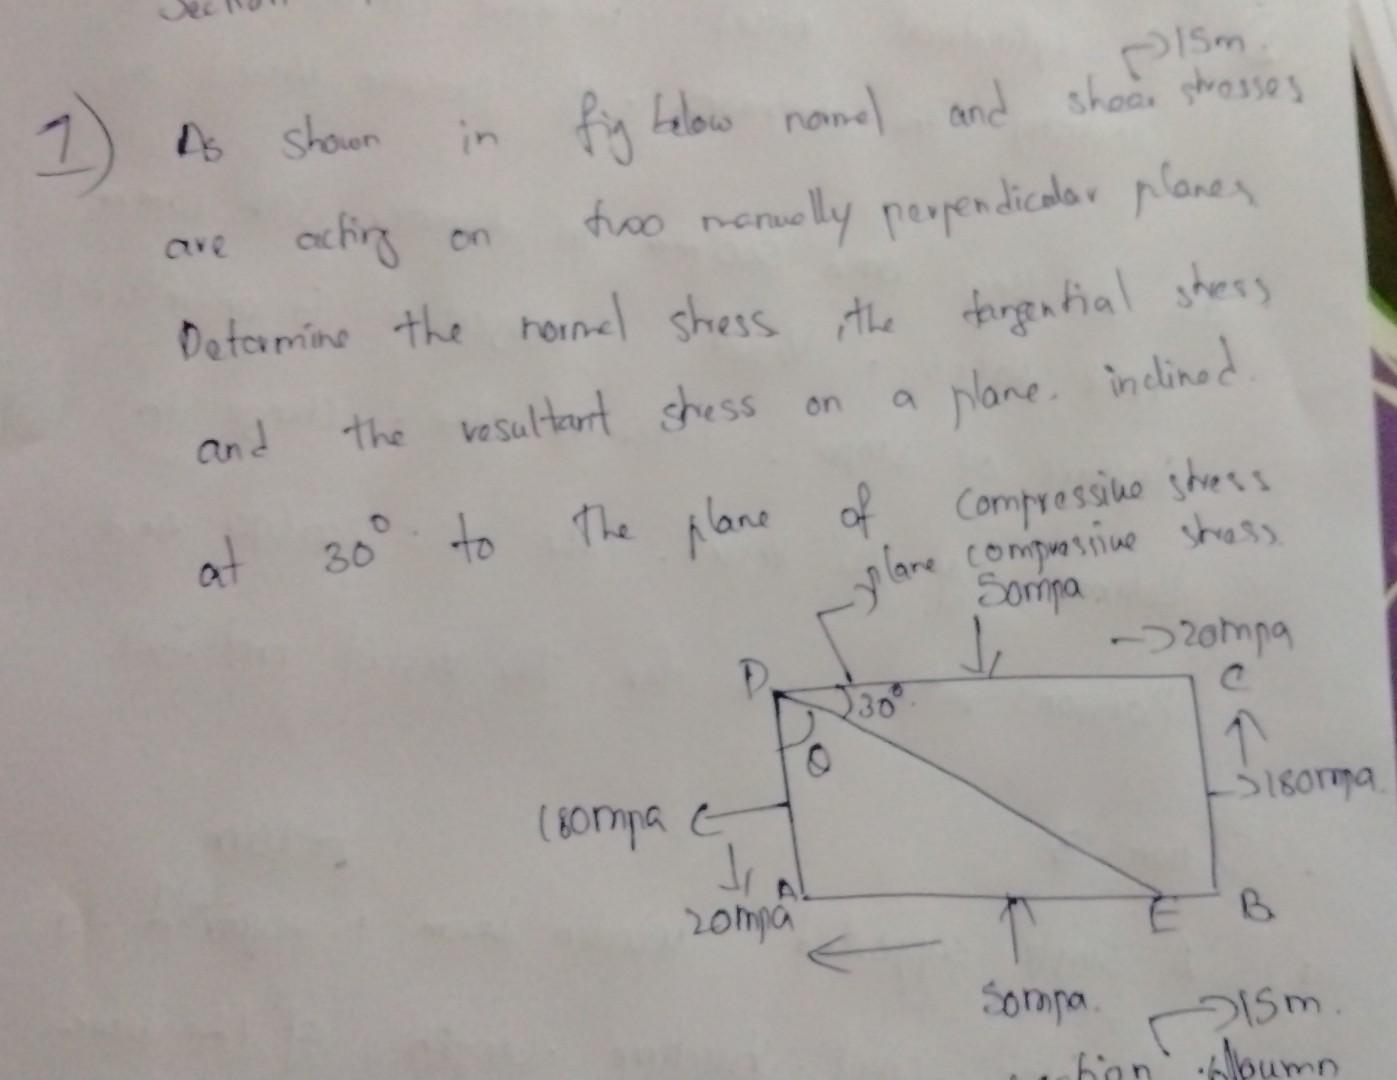 Section
→15m.
1) As shown in fig below normel and shear stresses
are acting on two manually perpendicular planes
Determine the normel stress, the tangential stress
and the resultant stress on a plane. inclined.
at 30° to The plane of compressive stress
plane compressive stress
50mpa
→20mpa
D
C
30°
θ
180mpa
180mpa
A
20mpa
E
B
50mpa.
→15m.